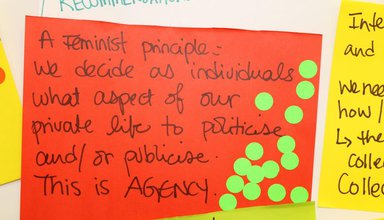 RECOMMENDATION
A Feminist principle:
We decide as individuals
what aspect of our
private life to politicise
and/or publicise.
This is AGENCY.
and
We need
how /
↳ the
colle
Collec